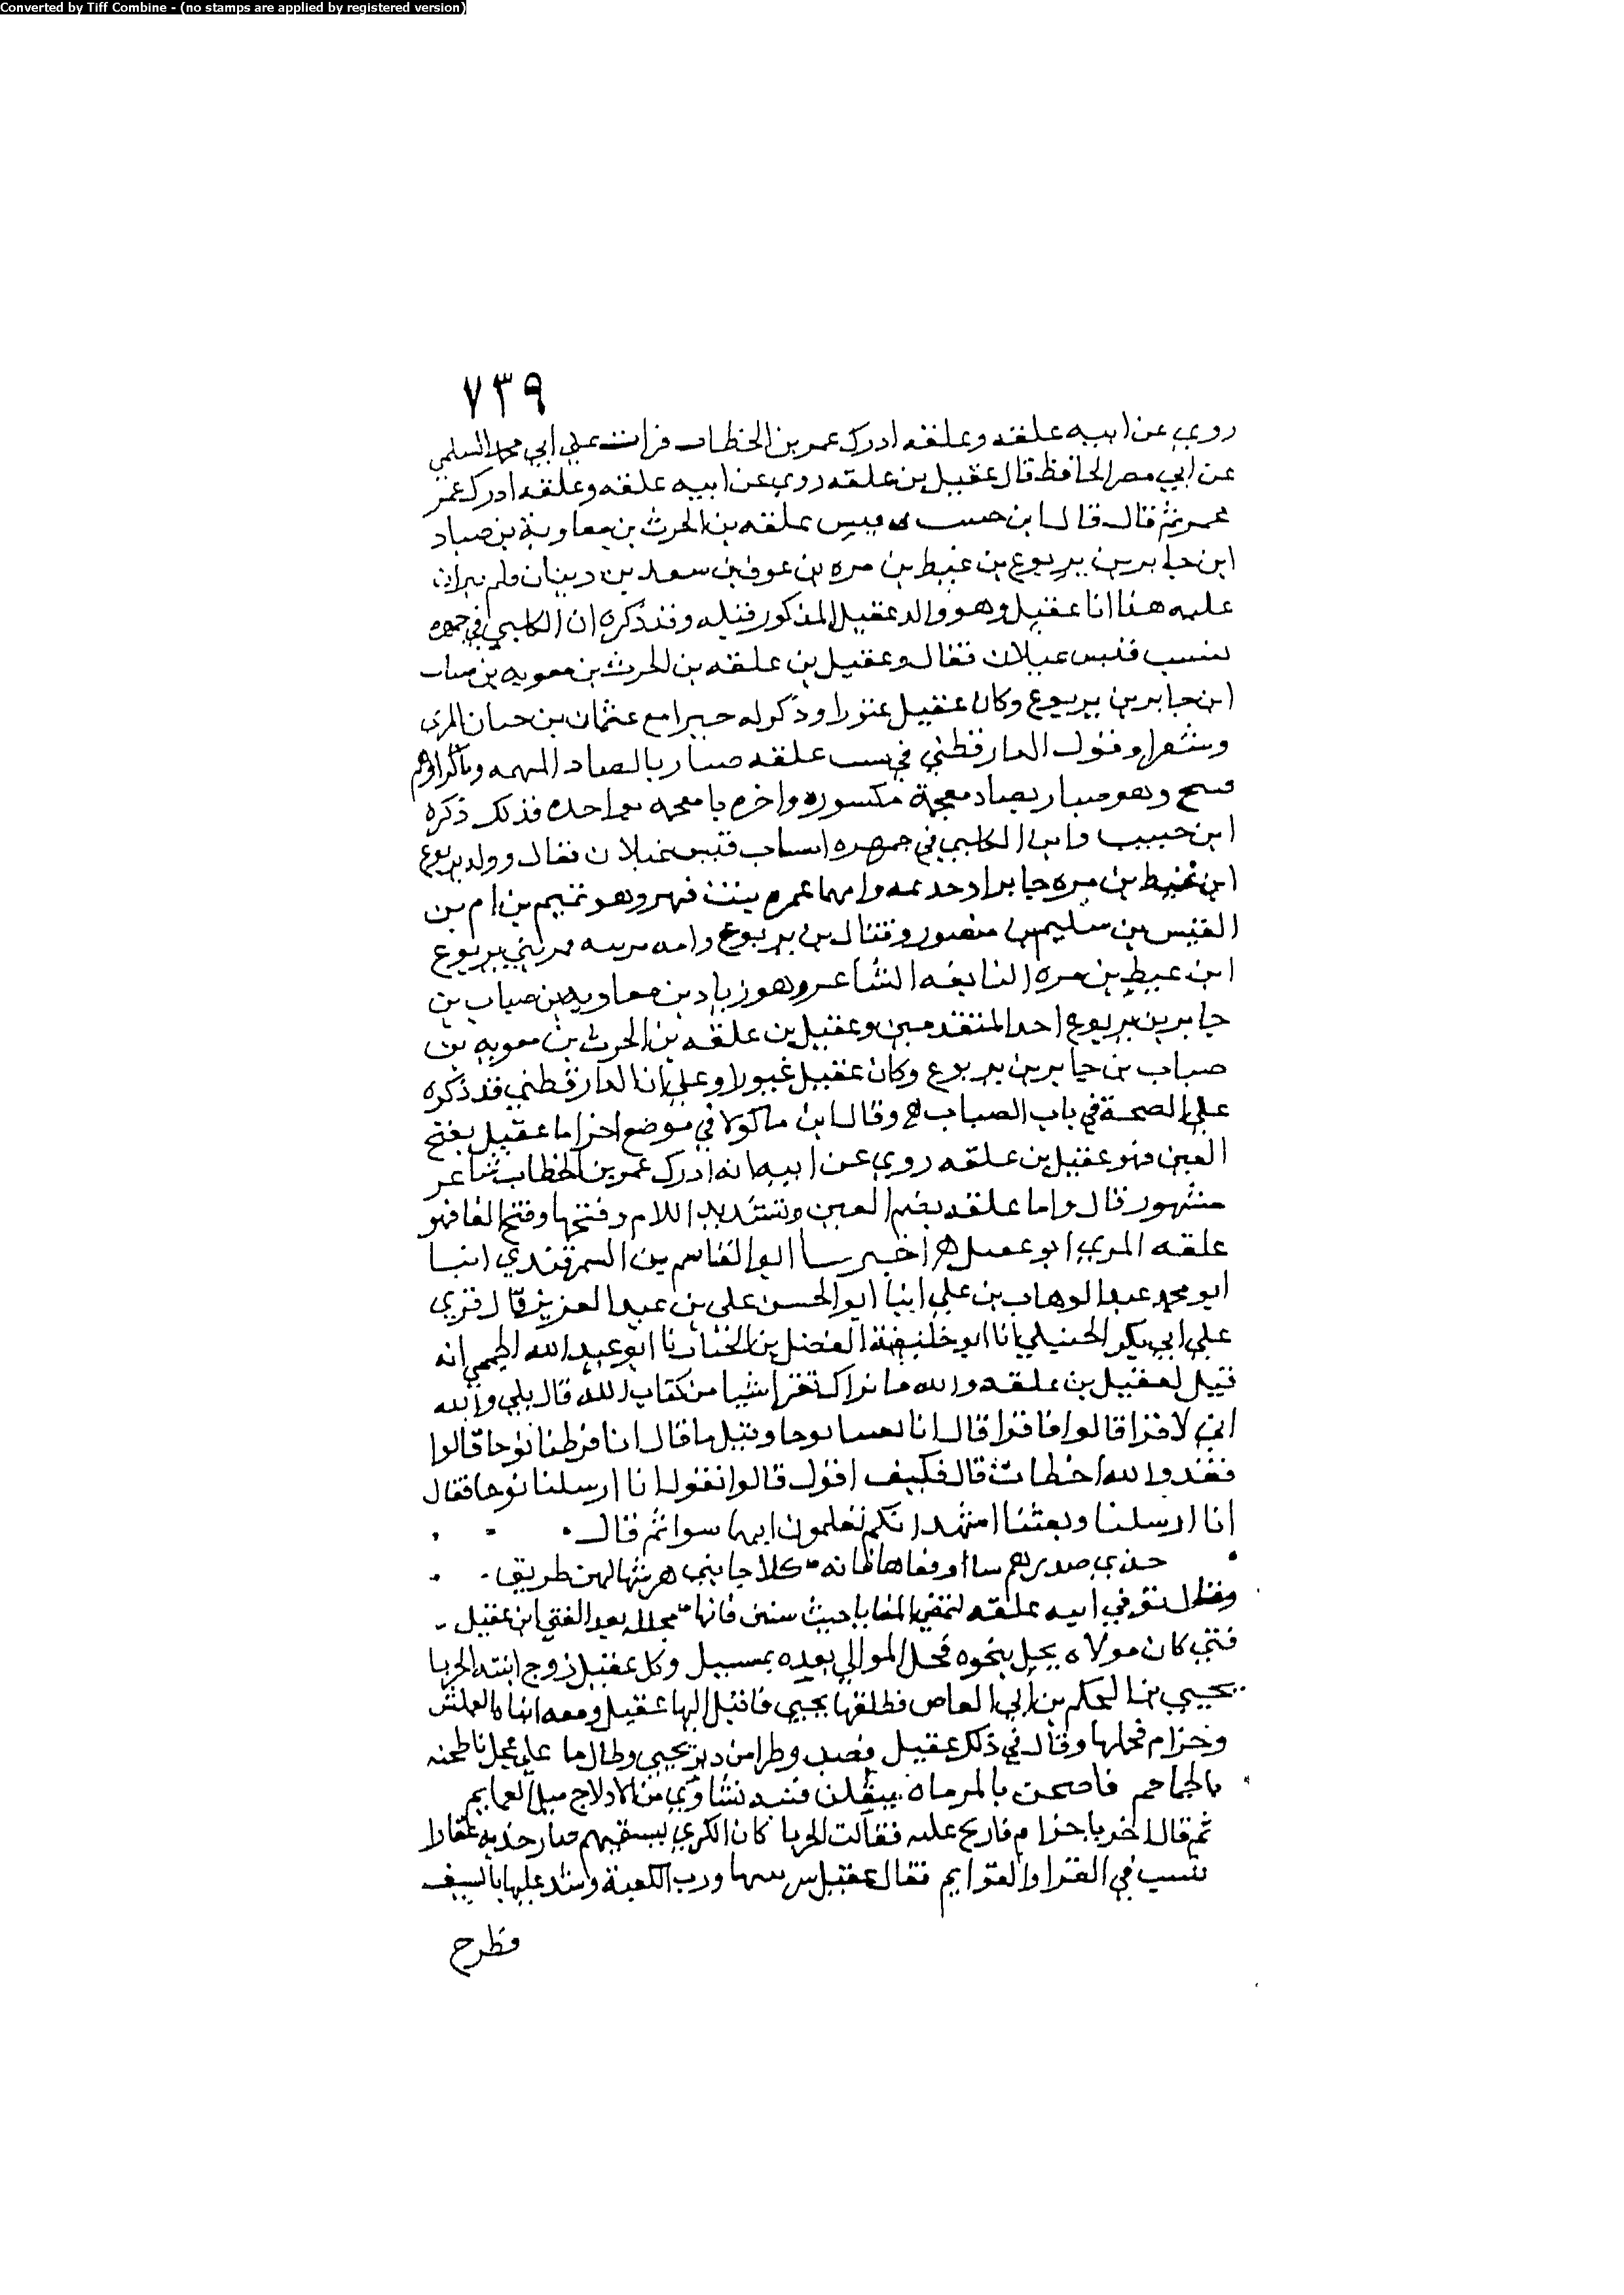 Converted by Tiff Combine - (no stamps are applied by registered version)
٧٣٩
روي عن ابيه علقه وعلقه ادرك عمر بن الخطاب قرات علي ابي محمد السلمي
عن ابي نصر الحافظ قال عقيل بن علقه روي عن ابيه علقه وعلقه ادرك عمر
عمر ثم قال قال ابن حبيب علقه بن الحرث بن معاوية بن صباد
ابن جابر بن يربوع بن غيط بن مره بن عوف بن سعد بن دينان ولم
عليه هنا انا عقيل وهو والد عقيل المذكور قبله وقد ذكره ابن الكلبي في جمهره
نسب قيس عيلان فقال وعقيل بن علقه بن الحرث بن معويه بن صباب
ابن جابر بن يربوع وكان عقيل وذكر له خبرا مع عثمان بن حيان المري
وشعرا وقول الدارقطني في نسب علقه صبار بالصاد المهمله
وهو صبار بضاد معجمة مكسوره واخره با معجمه بواحده فذلك ذكره
ابن حبيب وابن الكلبي في جمهره انساب قيس عيلان فقال وولد يربوع
ابن غيط بن مره جابرا وامهما عمره بنت فهر وهو تميم بن ام بن
القيس بن سليم بن منصور وقتال بن يربوع وامه فمن بني يربوع
ابن غيط بن مره النابغه الشاعر وهو زياد بن معاويه بن صباب بن
جابر بن يربوع احد المتقدمين وعقيل بن علقه بن الحرث بن معويه بن
صباب بن جابر بن يربوع وكان عقيل غيورا وعلي انا الدارقطني قد ذكره
علي الصحة في باب الصباب وقال ابن ماكولا في موضع اخر اما عقيل بفتح
العين فهو عقيل بن علقه روي عن ابيه انه ادرك عمر بن الخطاب شاعر
مشهور قال واما علقه بضم العين وتشديد اللام وفتحها وفتح الفا فهو
علقه المري ابو عقيل اخبرنا ابو القاسم بن السمرقندي انبا
ابو محمد عبد الوهاب بن علي انبا ابو الحسن علي بن عبد العزيز قال قري
علي ابي بكر الحنبلي انا ابو خليفة الفضل بن الحباب نا ابو عبد الله الجمحي انه
قيل لعقيل بن علقه والله ما نراك تقرا شيا من كتاب الله قال بلي والله
اني لاقرا قالوا فاقرا قال انا بعثنا نوحا وقيل ما قال انا فرطنا نوحا قالوا
فقد والله اخطات قال فكيف اقول قالوا تقول انا ارسلنا نوحا فقال
انا ارسلنا وبعثنا اشهد انكم تعلمون انهما سوا ثم قال
خذي صدر هرشا او قفاها فانه كلا جانبي هرشا لهن طريق
وقال توفي ابيه علقه لتمض المنايا حيث سنن فانها مجلله بعد الفتي ابن عقيل
فتي كان مولاه يحل بنجوه فحل الموالي بعده بمسيل وكان عقيل زوج ابنته الجربا
يحيي بن الحكم بن ابي العاص فطلقها يحيي فاقبل اليها عقيل ومعه ابناه العملس
وحزام فحملها وقال في ذلك عقيل وطرا من دير يحيي وطال ما علي عجل ناطحنه
بالجماجم فاصبحن بالمرماه ينقلن فتيه نشاوي من الادلاج ميل العمايم
ثم قال اخر يا حزام فاريح عليه فقالت الجربا كان الكري يسقيهم صارخديه عقارا
تنسب في القرا والقوايم فقال عقيل شربتها ورب الكعبة وشد عليها بالسيف
فطرح